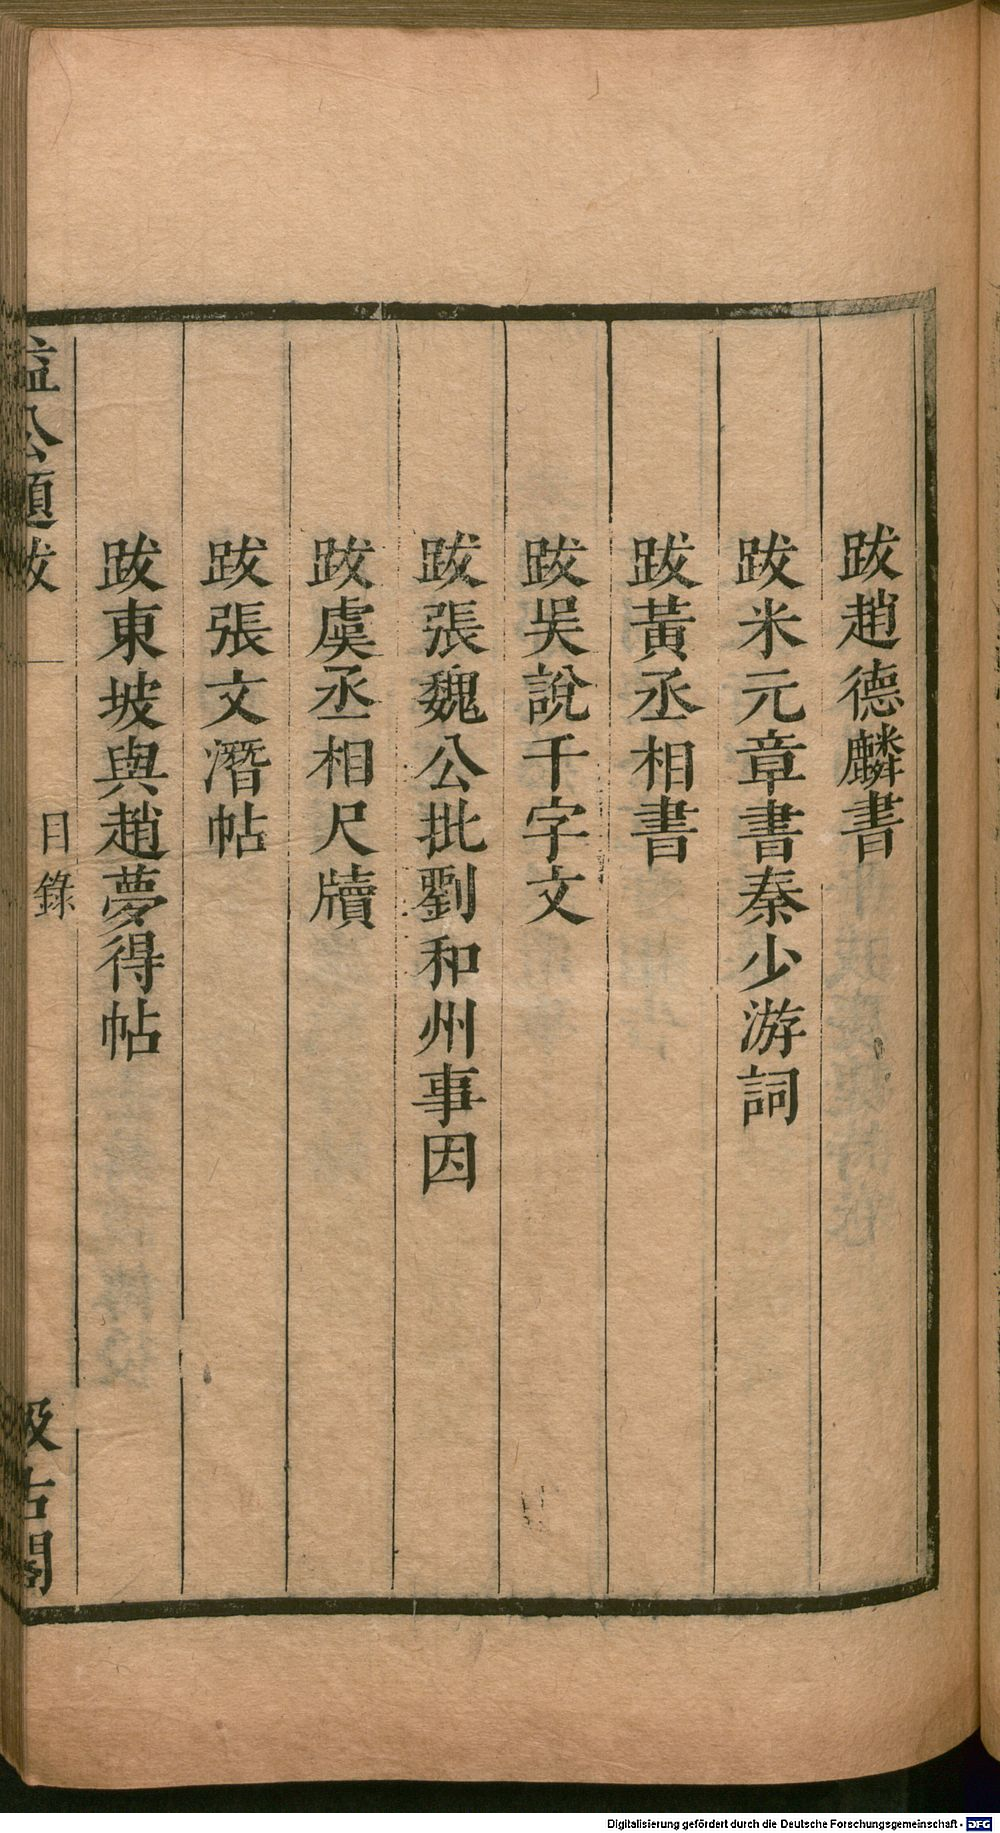 跋趙德麟書
跋米元章書秦少游詞
跋黃丞相書
跋吳說千字文
跋張魏公批劉和州事因
跋虞丞相尺牘
跋張文潛帖
跋東坡與趙夢得帖
益公題跋
目錄
汲古閣
Digitalisierung gefördert durch die Deutsche Forschungsgemeinschaft - DFG